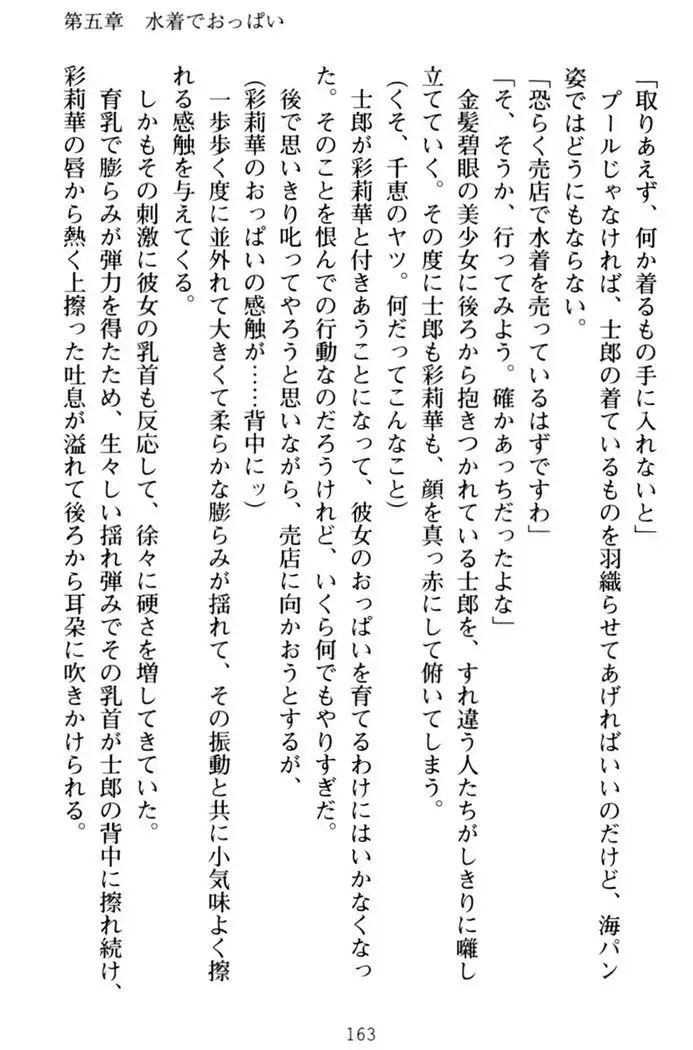 第五章　水着でおっぱい
「取りあえず、何か着るもの手に入れないと」
プールじゃなければ、士郎の着ているものを羽織らせてあげればいいのだけど、海パン
姿ではどうにもならない。
「恐らく売店で水着を売っているはずですわ」
「そ、そうか、行ってみよう。確かあっちだったよな」
金髪碧眼の美少女に後ろから抱きつかれている士郎を、すれ違う人たちがしきりに囃し
立てていく。その度に士郎も彩莉華も、顔を真っ赤にして俯いてしまう。
(くそ、千恵のヤツ。何だってこんなこと)
士郎が彩莉華と付きあうことになって、彼女のおっぱいを育てるわけにはいかなくなっ
た。そのことを恨んでの行動なのだろうけれど、いくら何でもやりすぎだ。
後で思いきり叱ってやろうと思いながら、売店に向かおうとするが、
(彩莉華のおっぱいの感触が……背中にッ)
一歩歩く度に並外れて大きくて柔らかな膨らみが揺れて、その振動と共に小気味よく擦
れる感触を与えてくる。
しかもその刺激に彼女の乳首も反応して、徐々に硬さを増してきていた。
育乳で膨らみが弾力を得たため、生々しい揺れ弾みでその乳首が士郎の背中に擦れ続け、
彩莉華の唇から熱く上擦った吐息が溢れて後ろから耳朶に吹きかけられる。
163